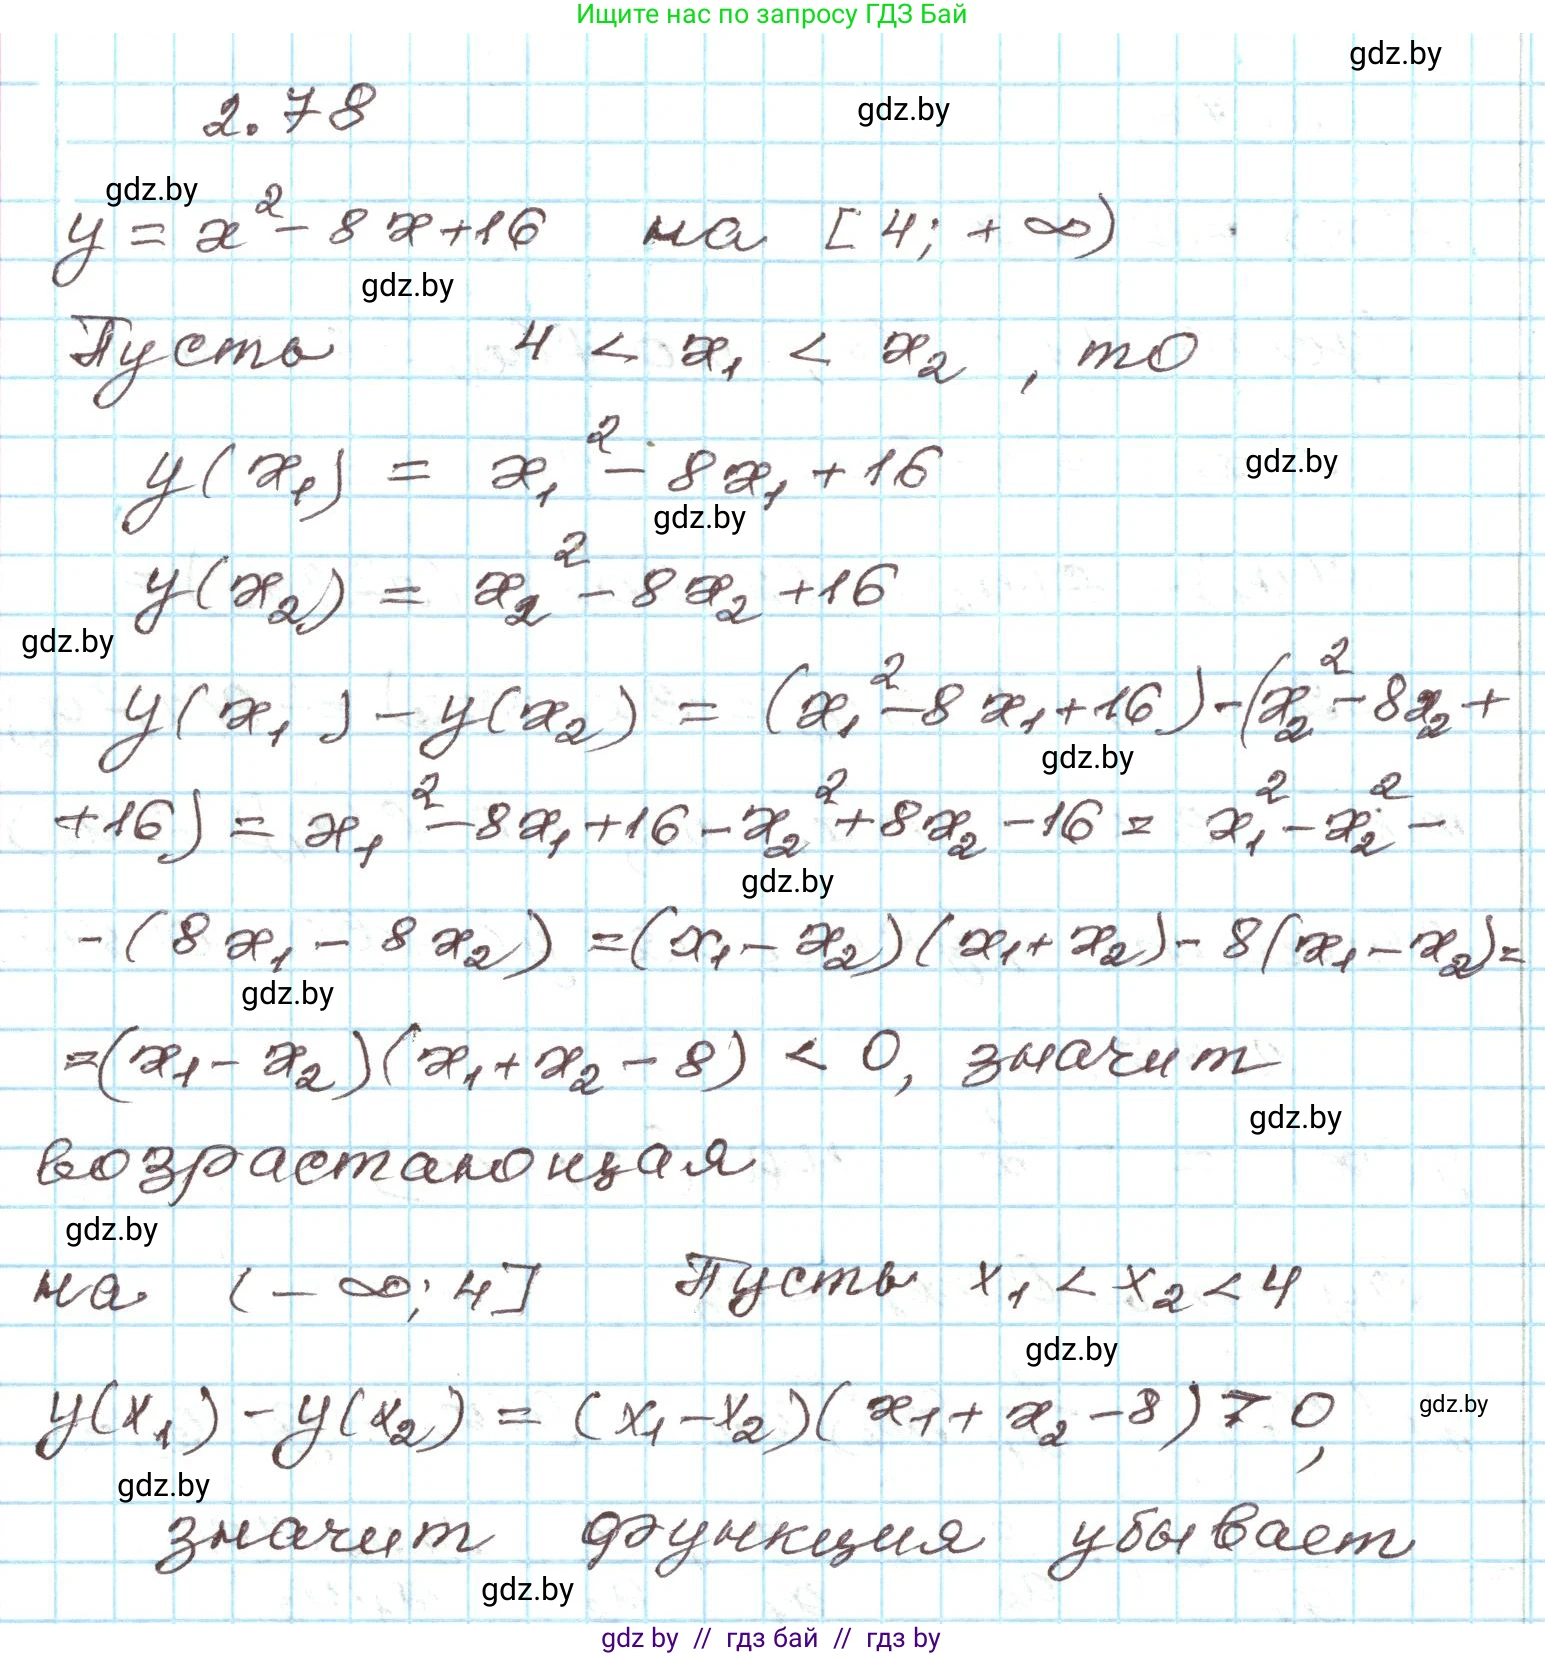 Ищите нас по запросу ГДЗ Бай
gdz.by
2.78
gdz.by
gdz.by
y = x² - 8x + 16 на [4; +∞)
gdz.by
Пусть 4 < x₁ < x₂, то
y(x₁) = x₁² - 8x₁ + 16
gdz.by
gdz.by
y(x₂) = x₂² - 8x₂ + 16
gdz.by
y(x₁) - y(x₂) = (x₁² - 8x₁ + 16) - (x₂² - 8x₂ +
gdz.by
+16) = x₁² - 8x₁ + 16 - x₂² + 8x₂ - 16 = x₁² - x₂² -
gdz.by
- (8x₁ - 8x₂) = (x₁ - x₂)(x₁ + x₂) - 8(x₁ - x₂) =
gdz.by
= (x₁ - x₂)(x₁ + x₂ - 8) < 0, значит
gdz.by
возрастающая
gdz.by
на (-∞; 4] Пусть x₁ < x₂ < 4
gdz.by
y(x₁) - y(x₂) = (x₁ - x₂)(x₁ + x₂ - 8) > 0,
gdz.by
gdz.by
значит функция убывает
gdz.by
gdz by // гдз бай // гдз by